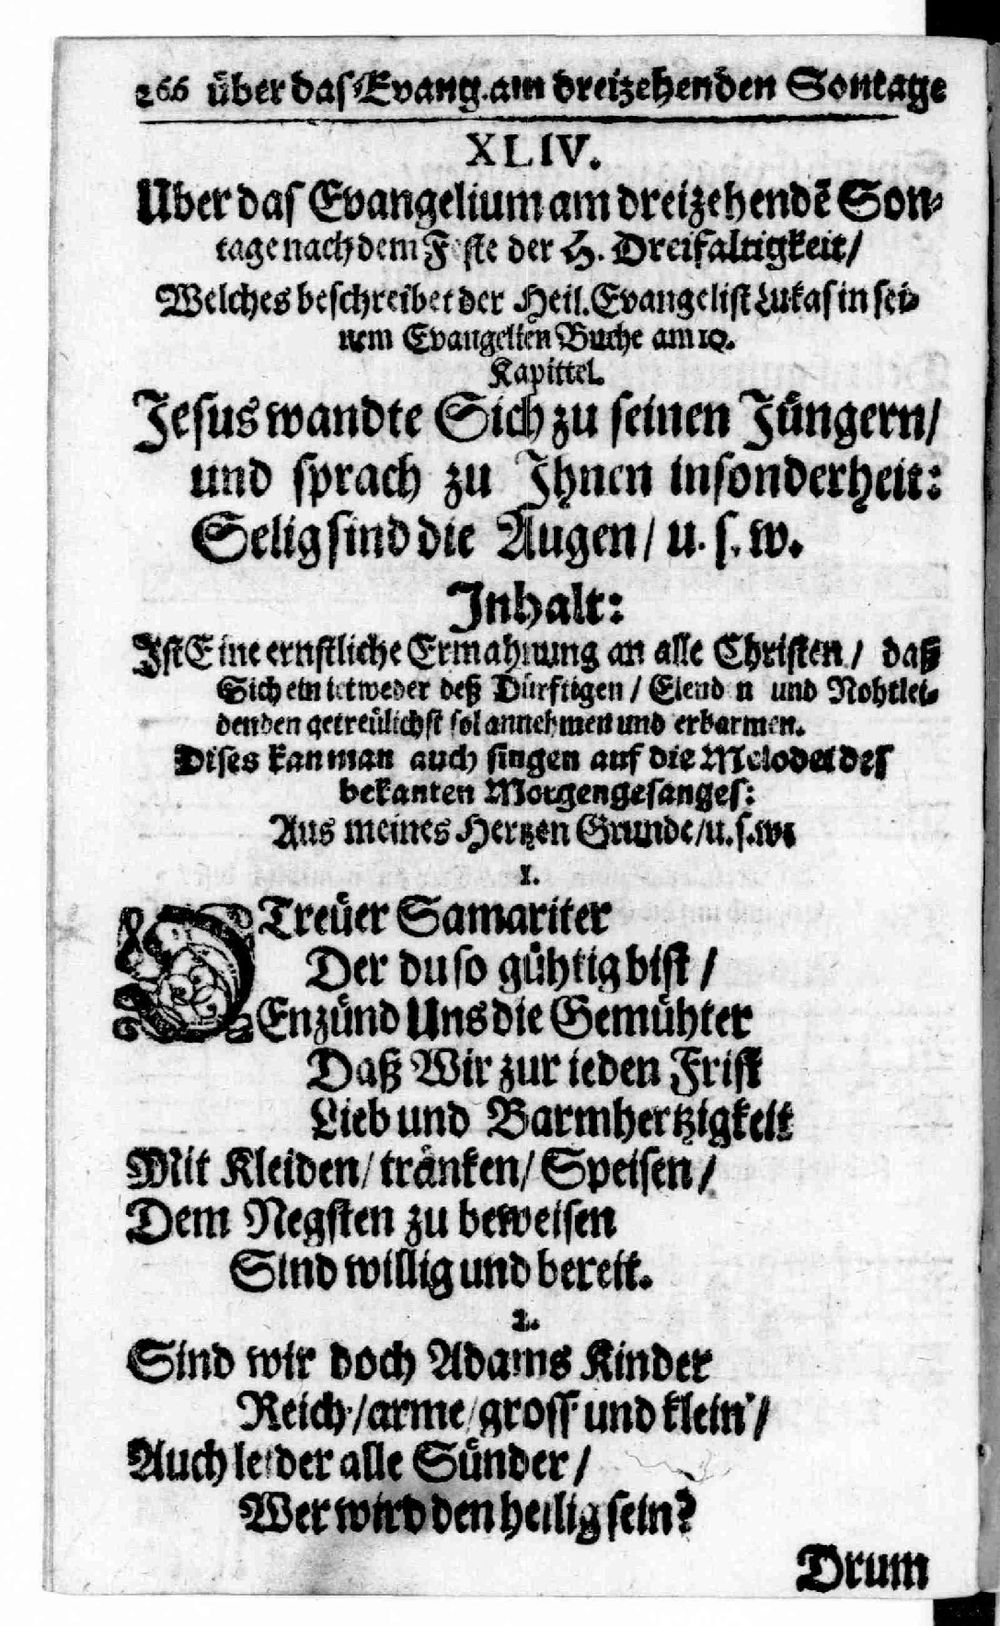 266 über das Evang. am dreizehenden Sontage
XLIV.
Uber das Evangelium am dreizehendẽ Son-
tage nach dem Feste der H. Dreifaltigkeit/
Welches beschreibet der Heil. Evangelist Lukas in sei-
nem Evangelien Buche am 10.
Kapittel.
Jesus wandte Sich zu seinen Jüngern/
und sprach zu Ihnen insonderheit:
Selig sind die Augen/ u. s. w.
Inhalt:
Ist Eine ernstliche Ermahnung an alle Christen/ daß
Sich ein ietweder deß Dürftigen/ Elenden und Nohtlei-
denden getreülichst sol annehmen und erbarmen.
Dises kan man auch singen auf die Melodei des
bekanten Morgengesanges:
Aus meines Hertzen Grunde/ u. s. w.
1.
O Treüer Samariter
Der du so gühtig bist/
Enzünd Uns die Gemühter
Daß Wir zur ieden Frist
Lieb und Barmhertzigkeit
Mit Kleiden/ tränken/ Speisen/
Dem Negsten zu beweisen
Sind willig und bereit.
2.
Sind wir doch Adams Kinder
Reich/ arme/ gross und klein/
Auch leider alle Sünder/
Wer wird den heilig sein?
Drum